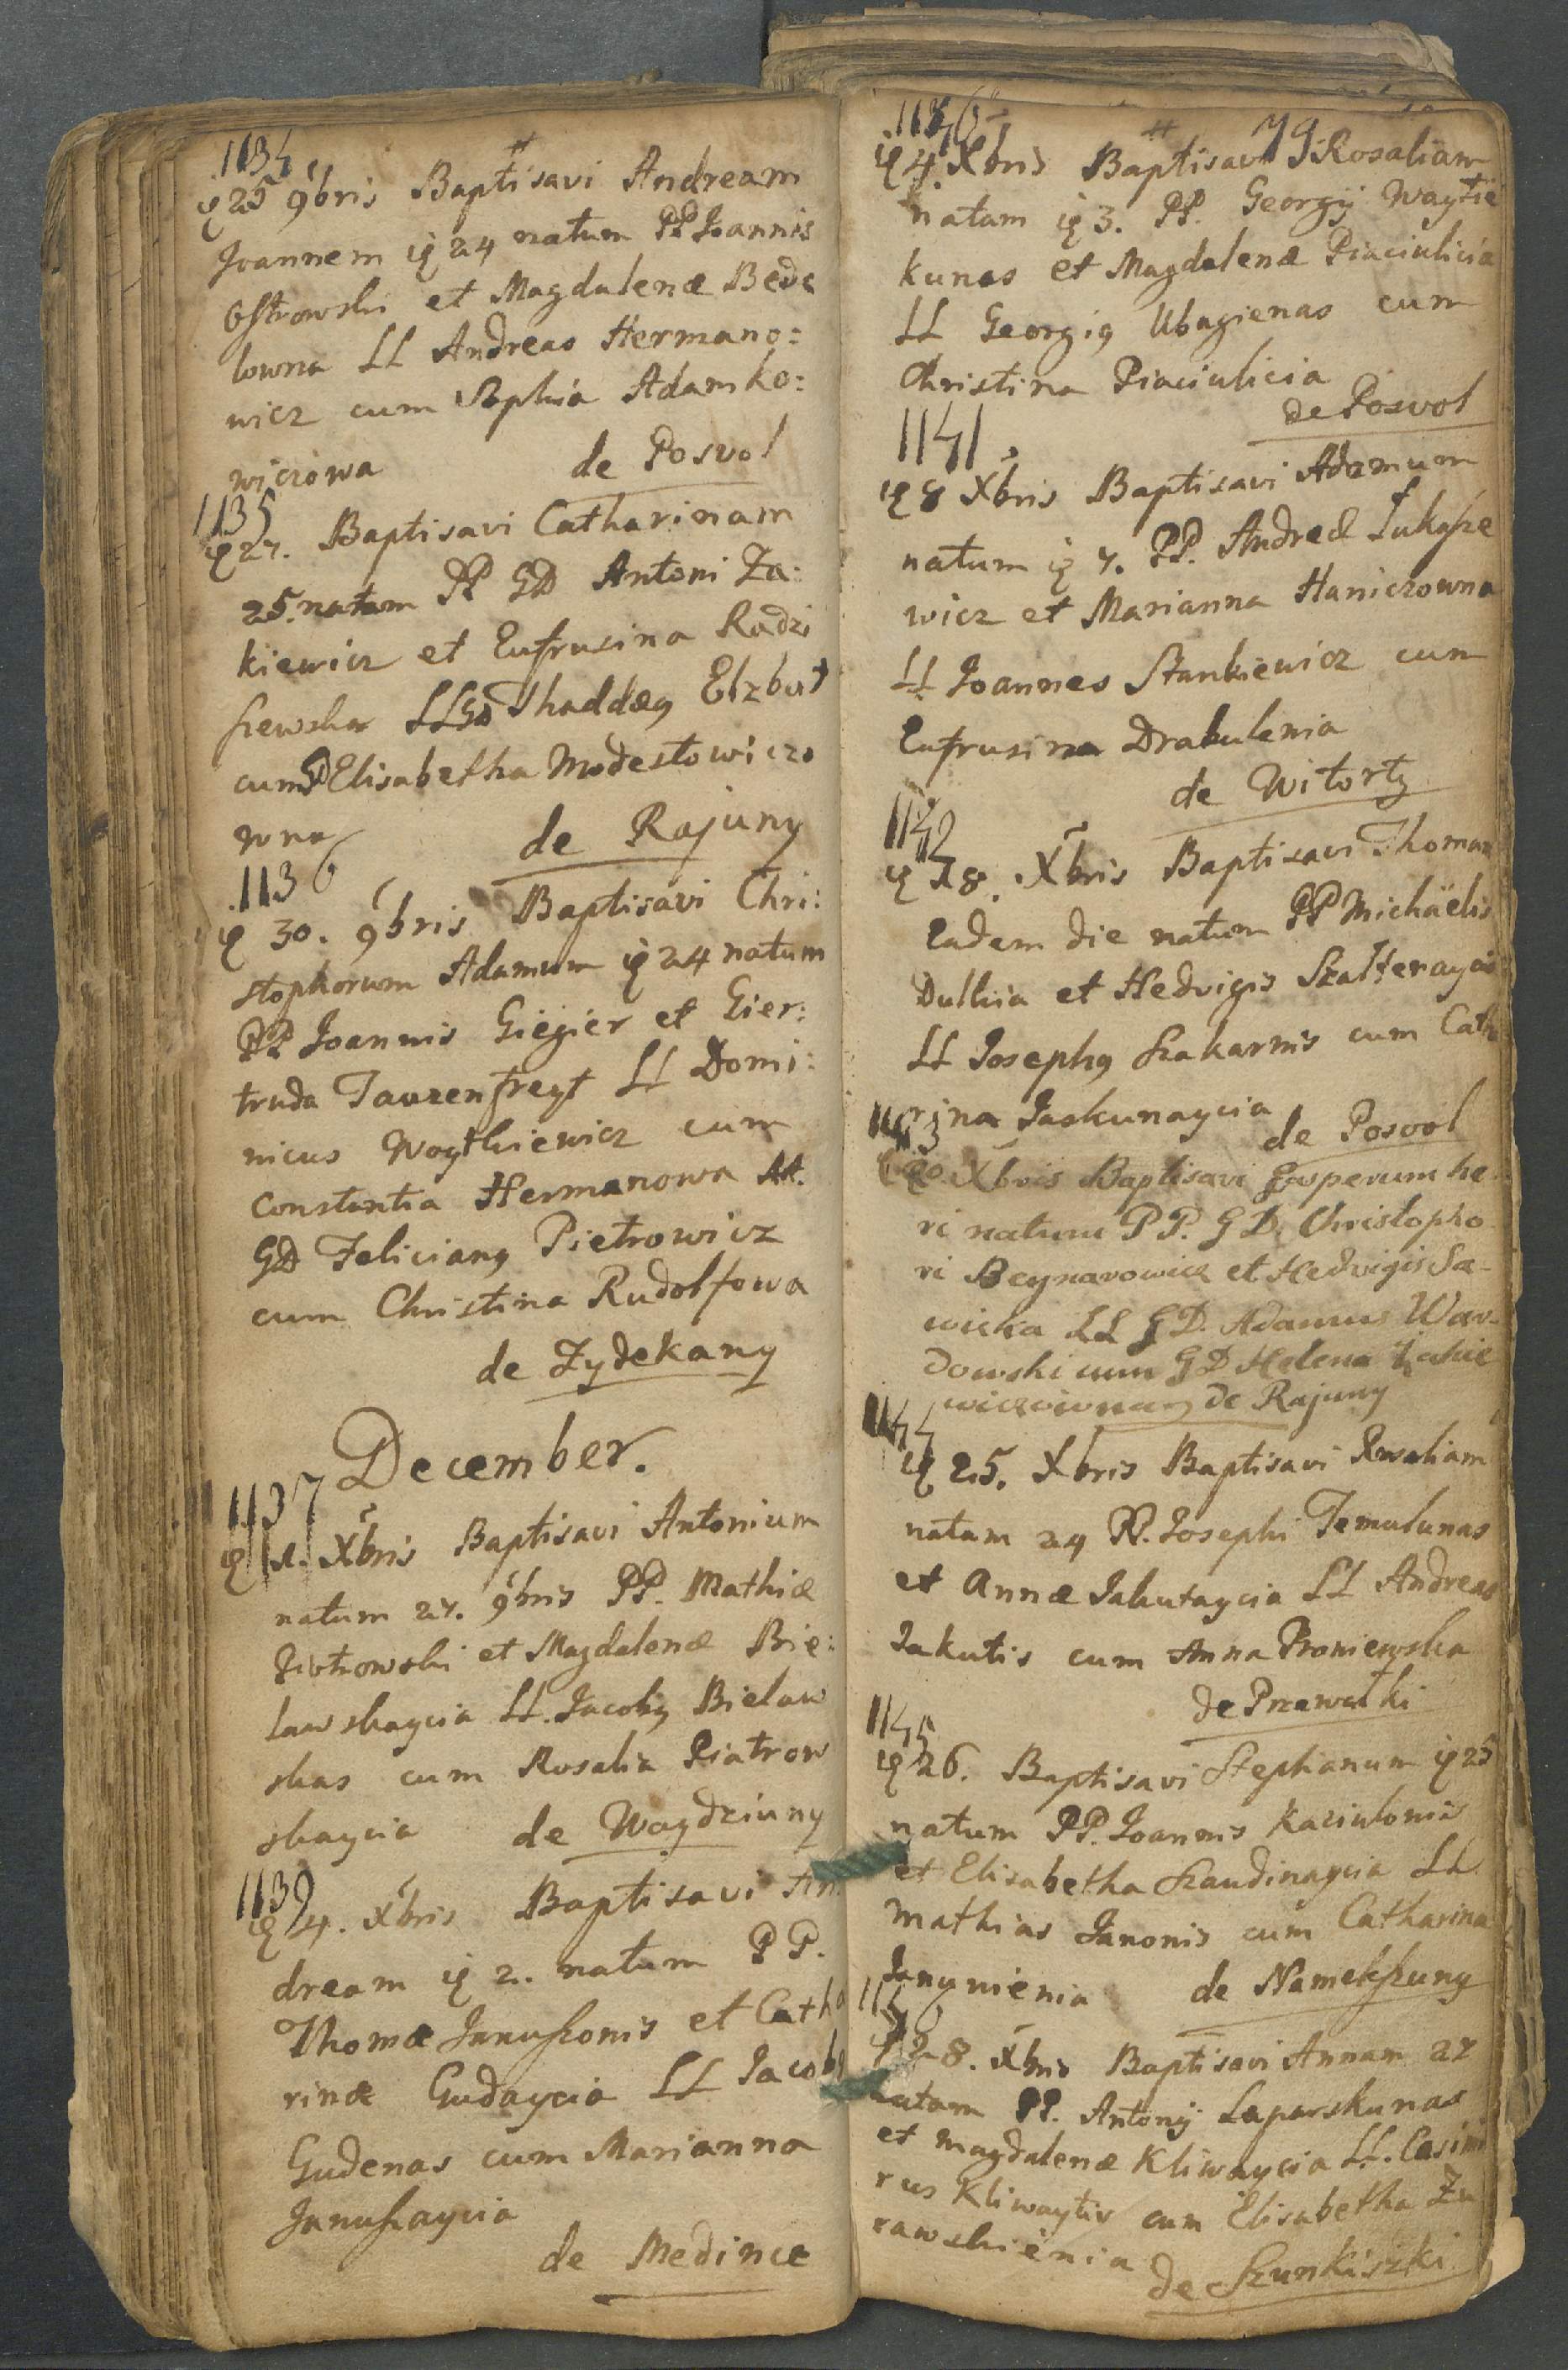 1134
25 9bris Baptisavi Andream
Joannem 24 natum PP Joannis
Ostrowski et Magdalenæ Bede
lowna LL Andreas Hermano=
wicz cum Sophia Adamko=
wiczowa de Posvol
1135
27. Baptisavi Catharinam
25. natam PP GD Antoni Za:
kiewicz et Eufrusina Radzi
szewska LL GD Thaddæ9 Elzbut
cum GD Elisabetha Modestowiczo
wna de Rajuny
1136
30. 9bris Baptisavi Chri:
stophorum Adamum 24 natum
PP Joannis Giegier et Gier:
truda Taurenfreyt LL Domi:
nicus Woytkiewicz cum
Constantia Hermanowa At.
GD Felician9 Pietrowicz
cum Christina Rudolfowa
de Zydekany
December.
1137
1. Xbris Baptisavi Antonium
natum 27. 9bris PP. Mathiæ
Piotrowski et Magdalenæ Bie:
lawskaycia LL. Jacob9 Bielaw
skas cum Rosalia Piatrow
skaycia de Waydziuny
1139
4. Xbris Baptisavi An:
dream 2. natum PP.
Thomæ Januszonis et Catha
rinæ Gudaycia LL Jacob9
Gudenas cum Marianna
Januszaycia
de Medince
79
1140
4. Xbris Baptisavi Rosaliam
natam 3. PP. Georgÿ Waytie
kunas et Magdalenæ Piaciulicia
LL Georgi9 Ubagienas cum
Christina Piaciulicia
de Posvol
1141
8 Xbris Baptisavi Adamum
natum 7. PP. Andreæ Łukasze
wicz et Marianna Haniczowna
LL Joannes Stankiewicz cum
Eufrusina Drabulenia
de Witorty
1142
18. Xbris Baptisavi Thomam
Eadem die natum PP Michäelis
Dulkia et Hedvigis Szaltenaycia
LL Joseph9 Szakarnis cum Catha
rina Jaskunaycia
de Posvol
1143
20 Xbris Baptisavi Gasperum he
ri natum PP. GD. Christopho
ri Beynarowicz et Hedvigis Sa-
wicka LL GD. Adamus Waw-
dowski cum GD Helena Zakie
wiczowna de Rajuny
1144
25. Xbris Baptisavi Rosaliam
natam 24 PP. Josephi Temulunas
et Annæ Jakutaycia LL Andreas
Jakutis cum Anna Proniewska
de Przewałki
1145
26. Baptisavi Stephanum 25
natum PP. Joannis Kaziulonis
et Elisabetha Szaudinaycia LL
Mathias Janonis cum Catharina
Janunienia de Namekszuny
1146
28. Xbris Baptisavi Annam 27
natam PP. Antonÿ Laparskunas
et Magdalenæ Kliwaycia LL. Casimi
rus Kliwaytis cum Elisabetha Zu
rawskienia
de Szunkiszki